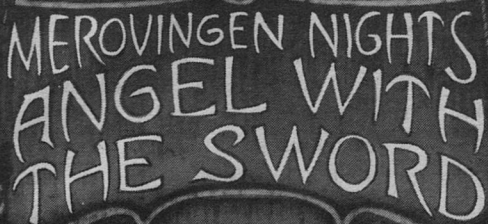 MEROVINGEN NIGHTS
ANGEL WITH
THE SWORD